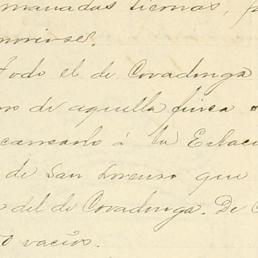 manadas tiernas, p
morirse.
Todo el de Covadonga
de aquella finca
á la Estaci
de San Lorenzo que
del de Covadonga. De C
vacíos.